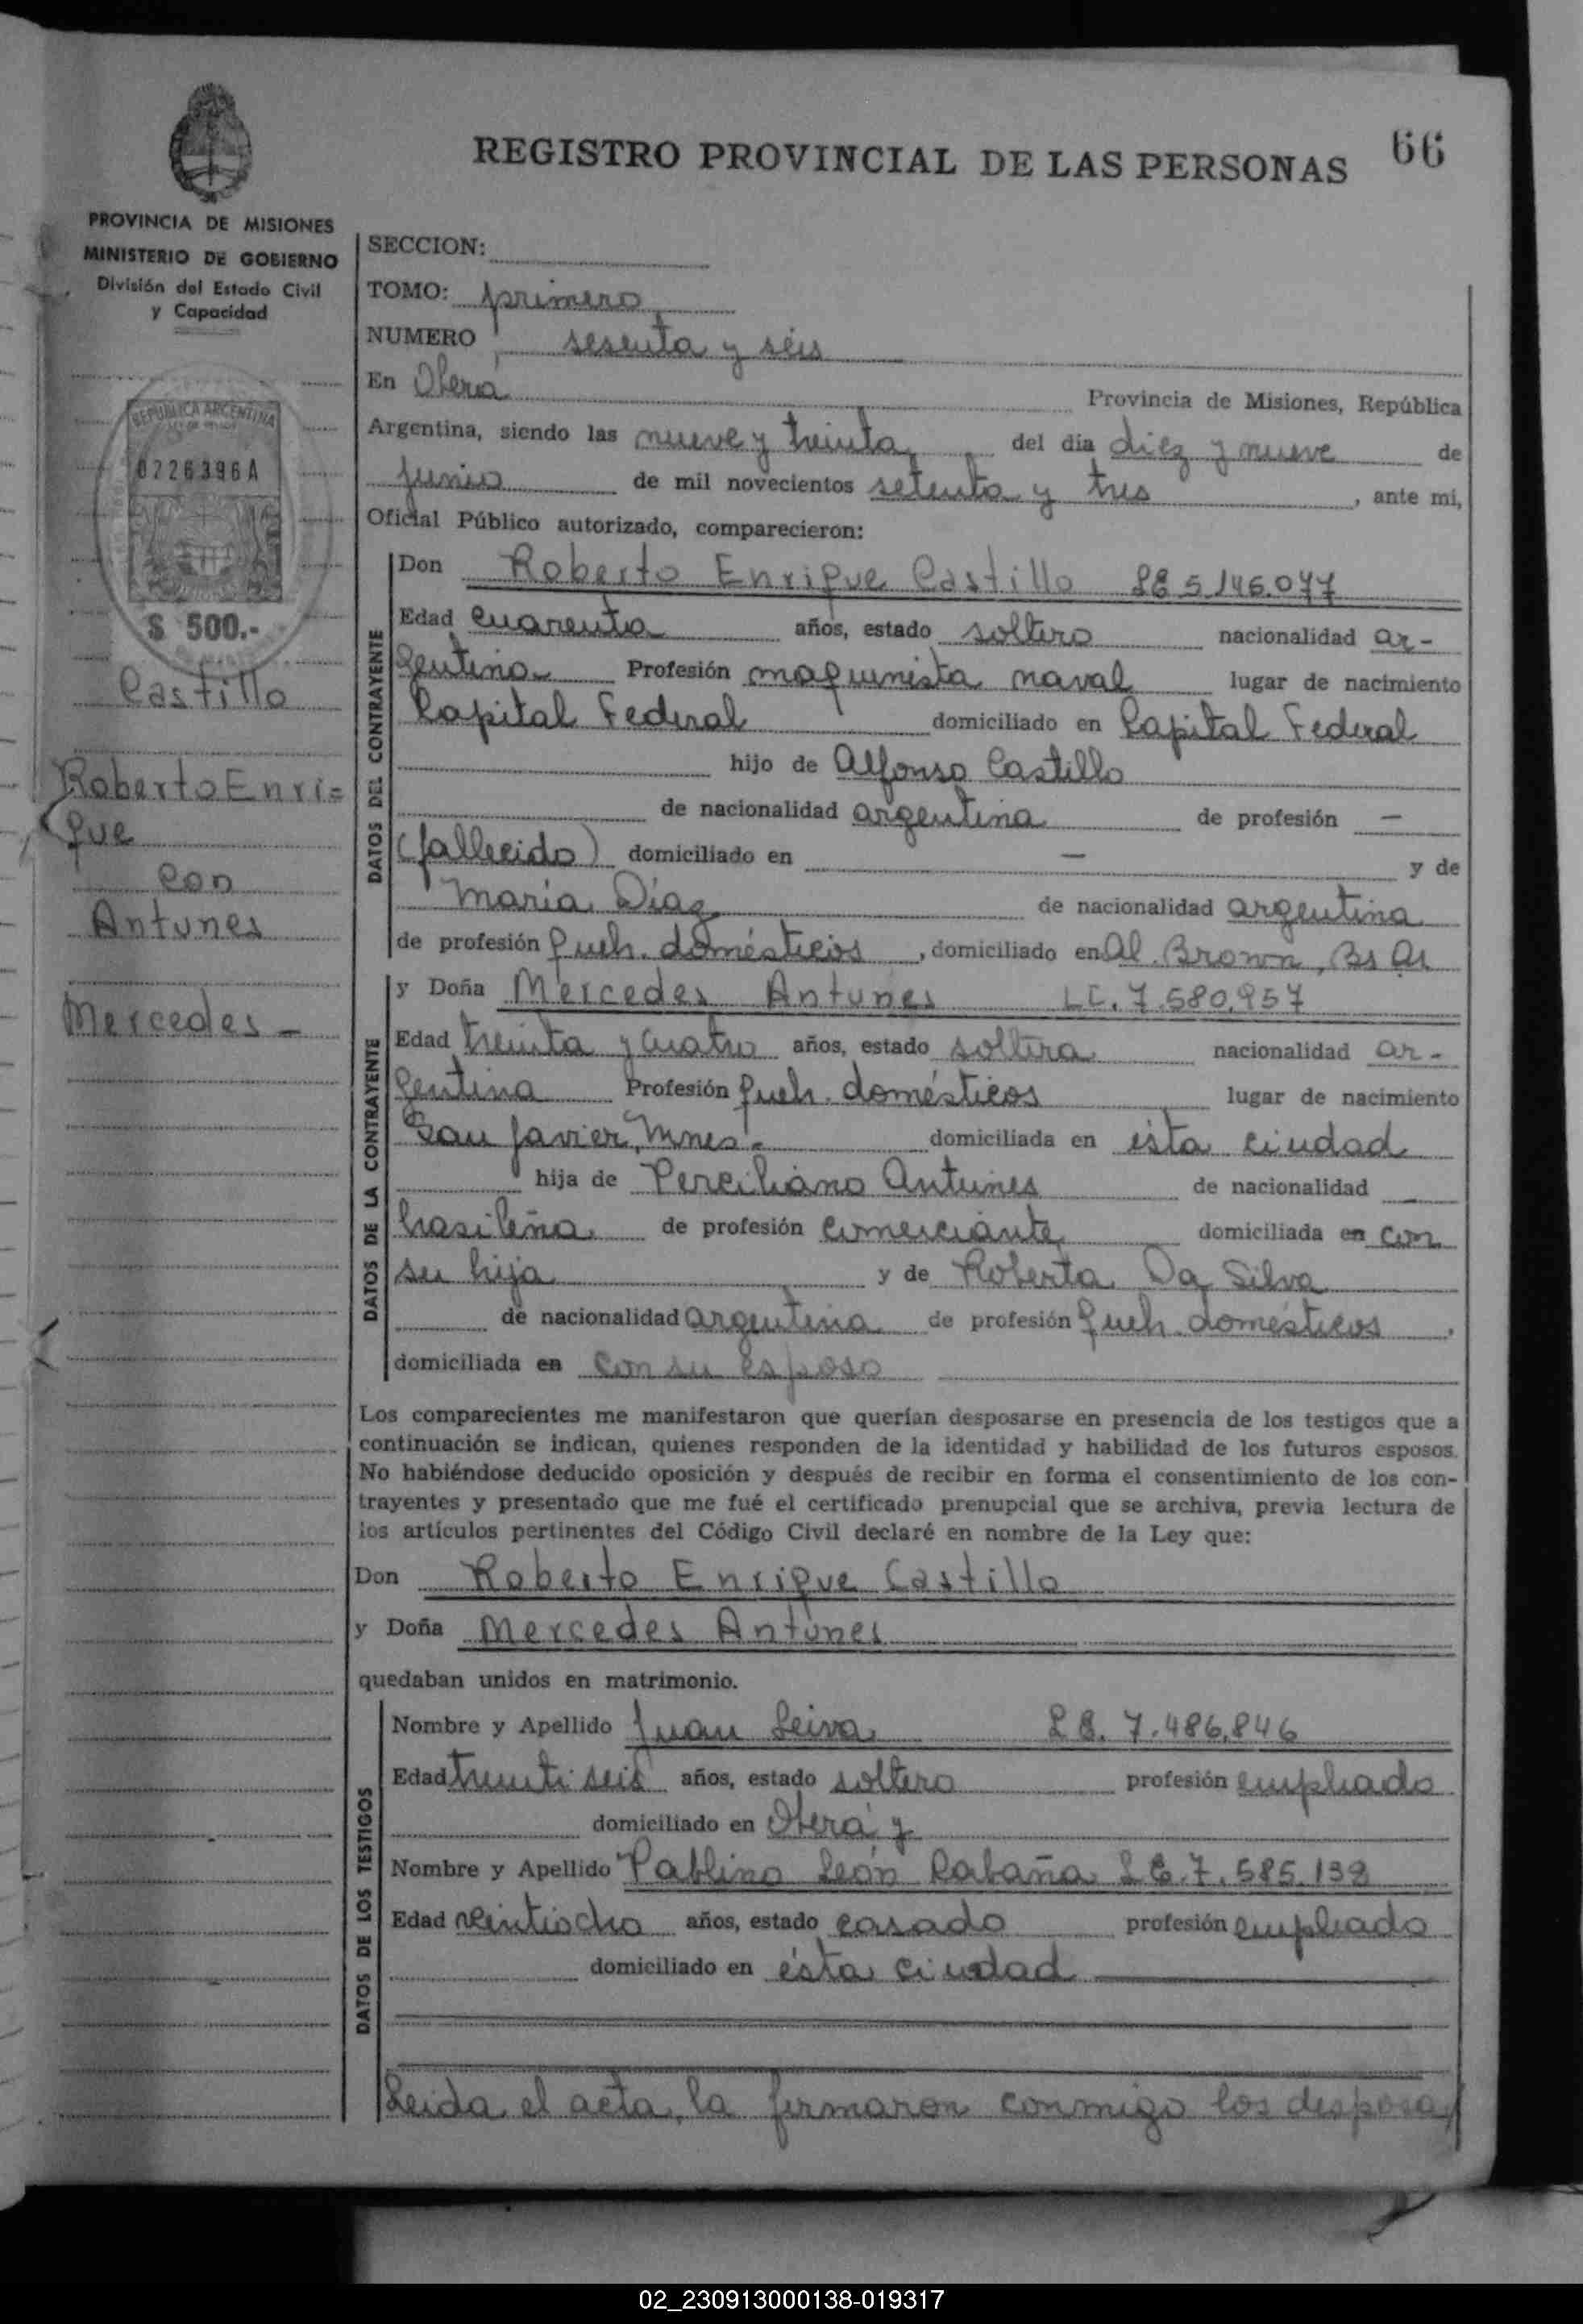 REGISTRO PROVINCIAL DE LAS PERSONAS 66
PROVINCIA DE MISIONES
MINISTERIO DE GOBIERNO
División del Estado Civil
y Capacidad
REPUBLICA ARGENTINA
0226396A
$ 500.-
Castillo
Roberto Enri=
que
con
Antunes
Mercedes -
SECCION:
TOMO: primero
NUMERO sesenta y séis
En Oberá Provincia de Misiones, República
Argentina, siendo las nueve y treinta del día diez y nueve de
junio de mil novecientos setenta y tres, ante mi,
Oficial Público autorizado, comparecieron:
DATOS DEL CONTRAYENTE
Don Roberto Enrique Castillo LE 5.146.077
Edad cuarenta años, estado soltero nacionalidad ar-
gentina Profesión maquinista naval lugar de nacimiento
Capital Federal domiciliado en Capital Federal
hijo de Alfonso Castillo
de nacionalidad argentina de profesión —
(fallecido) domiciliado en — y de
María Díaz de nacionalidad argentina
de profesión queh. domésticos, domiciliado en Al. Brown, Bs As
DATOS DE LA CONTRAYENTE
y Doña Mercedes Antunes LC. 7.580.957
Edad treinta y cuatro años, estado soltera nacionalidad ar-
gentina Profesión queh. domésticos lugar de nacimiento
San Javier, Mnes.- domiciliada en ésta ciudad
hija de Perciliano Antunes de nacionalidad
brasileña de profesión comerciante domiciliada en con
su hija y de Roberta Da Silva
de nacionalidad argentina de profesión queh. domésticos,
domiciliada en con su esposo
Los comparecientes me manifestaron que querían desposarse en presencia de los testigos que a
continuación se indican, quienes responden de la identidad y habilidad de los futuros esposos.
No habiéndose deducido oposición y después de recibir en forma el consentimiento de los con-
trayentes y presentado que me fué el certificado prenupcial que se archiva, previa lectura de
los artículos pertinentes del Código Civil declaré en nombre de la Ley que:
Don Roberto Enrique Castillo
y Doña Mercedes Antunes
quedaban unidos en matrimonio.
DATOS DE LOS TESTIGOS
Nombre y Apellido Juan Leiva LE. 7.486.846
Edad treinti seis años, estado soltero profesión empleado
domiciliado en Oberá y
Nombre y Apellido Pablino León Cabaña LE. 7.585.138
Edad veintiocho años, estado casado profesión empleado
domiciliado en ésta ciudad
Leída el acta, la firmaron conmigo los desposa/
02_230913000138-019317